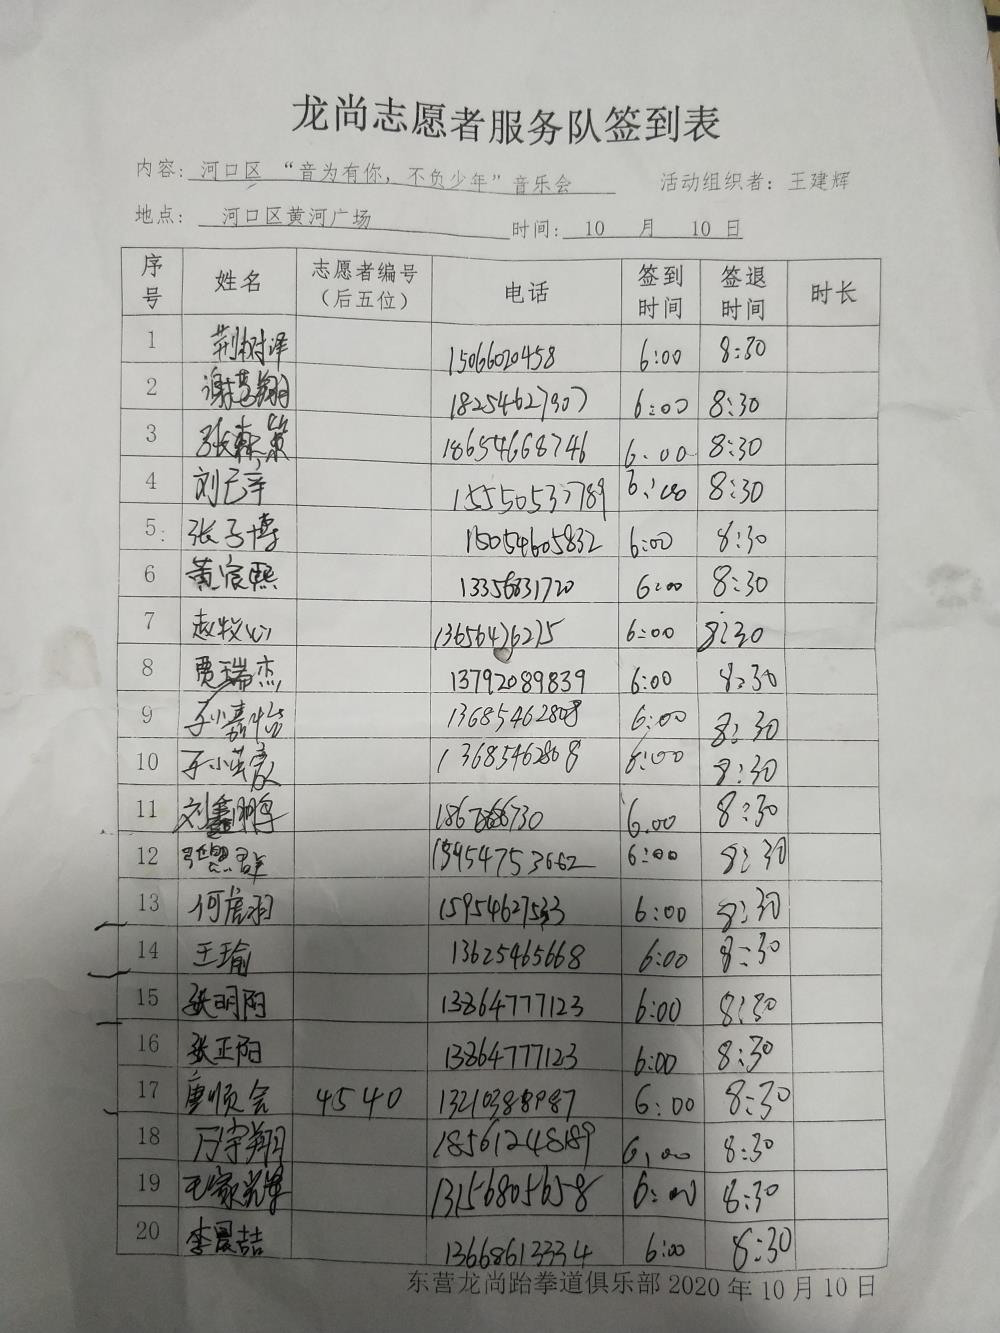 龙尚志愿者服务队签到表
内容: 河口区 “音为有你，不负少年”音乐会 活动组织者：王建辉
地点: 河口区黄河广场 时间: 10 月 10 日
序号 姓名 志愿者编号（后五位） 电话 签到时间 签退时间 时长
1 荆树泽 15066020458 6:00 8:30
2 谢梦翔 18254627907 6:00 8:30
3 张 18654668746 6:00 8:30
4 刘 15550537789 6:00 8:30
5 张子博 15054605832 6:00 8:30
6 黄宸熙 13356831720 6:00 8:30
7 赵牧心 13656476215 6:00 8:30
8 贾瑞杰 13792089839 6:00 8:30
9 于小嘉怡 13685462808 6:00 8:30
10 于小 13685462808 6:00 8:30
11 刘鑫鹏 6.00 8:30
12 6:00 8:30
13 何 15954627533 6:00 8:30
14 王瑜 13625465668 6:00 8:30
15 张明阳 13864777123 6:00 8:30
16 张正阳 13864777123 6:00 8:30
17 唐顺会 4540 13210388987 6:00 8:30
18 万宇翔 18561248189 6:00 8:30
19 王家 13156805658 6:00 8:30
20 李晨喆 13668613334 6:00 8:30
东营龙尚跆拳道俱乐部 2020 年 10 月 10 日